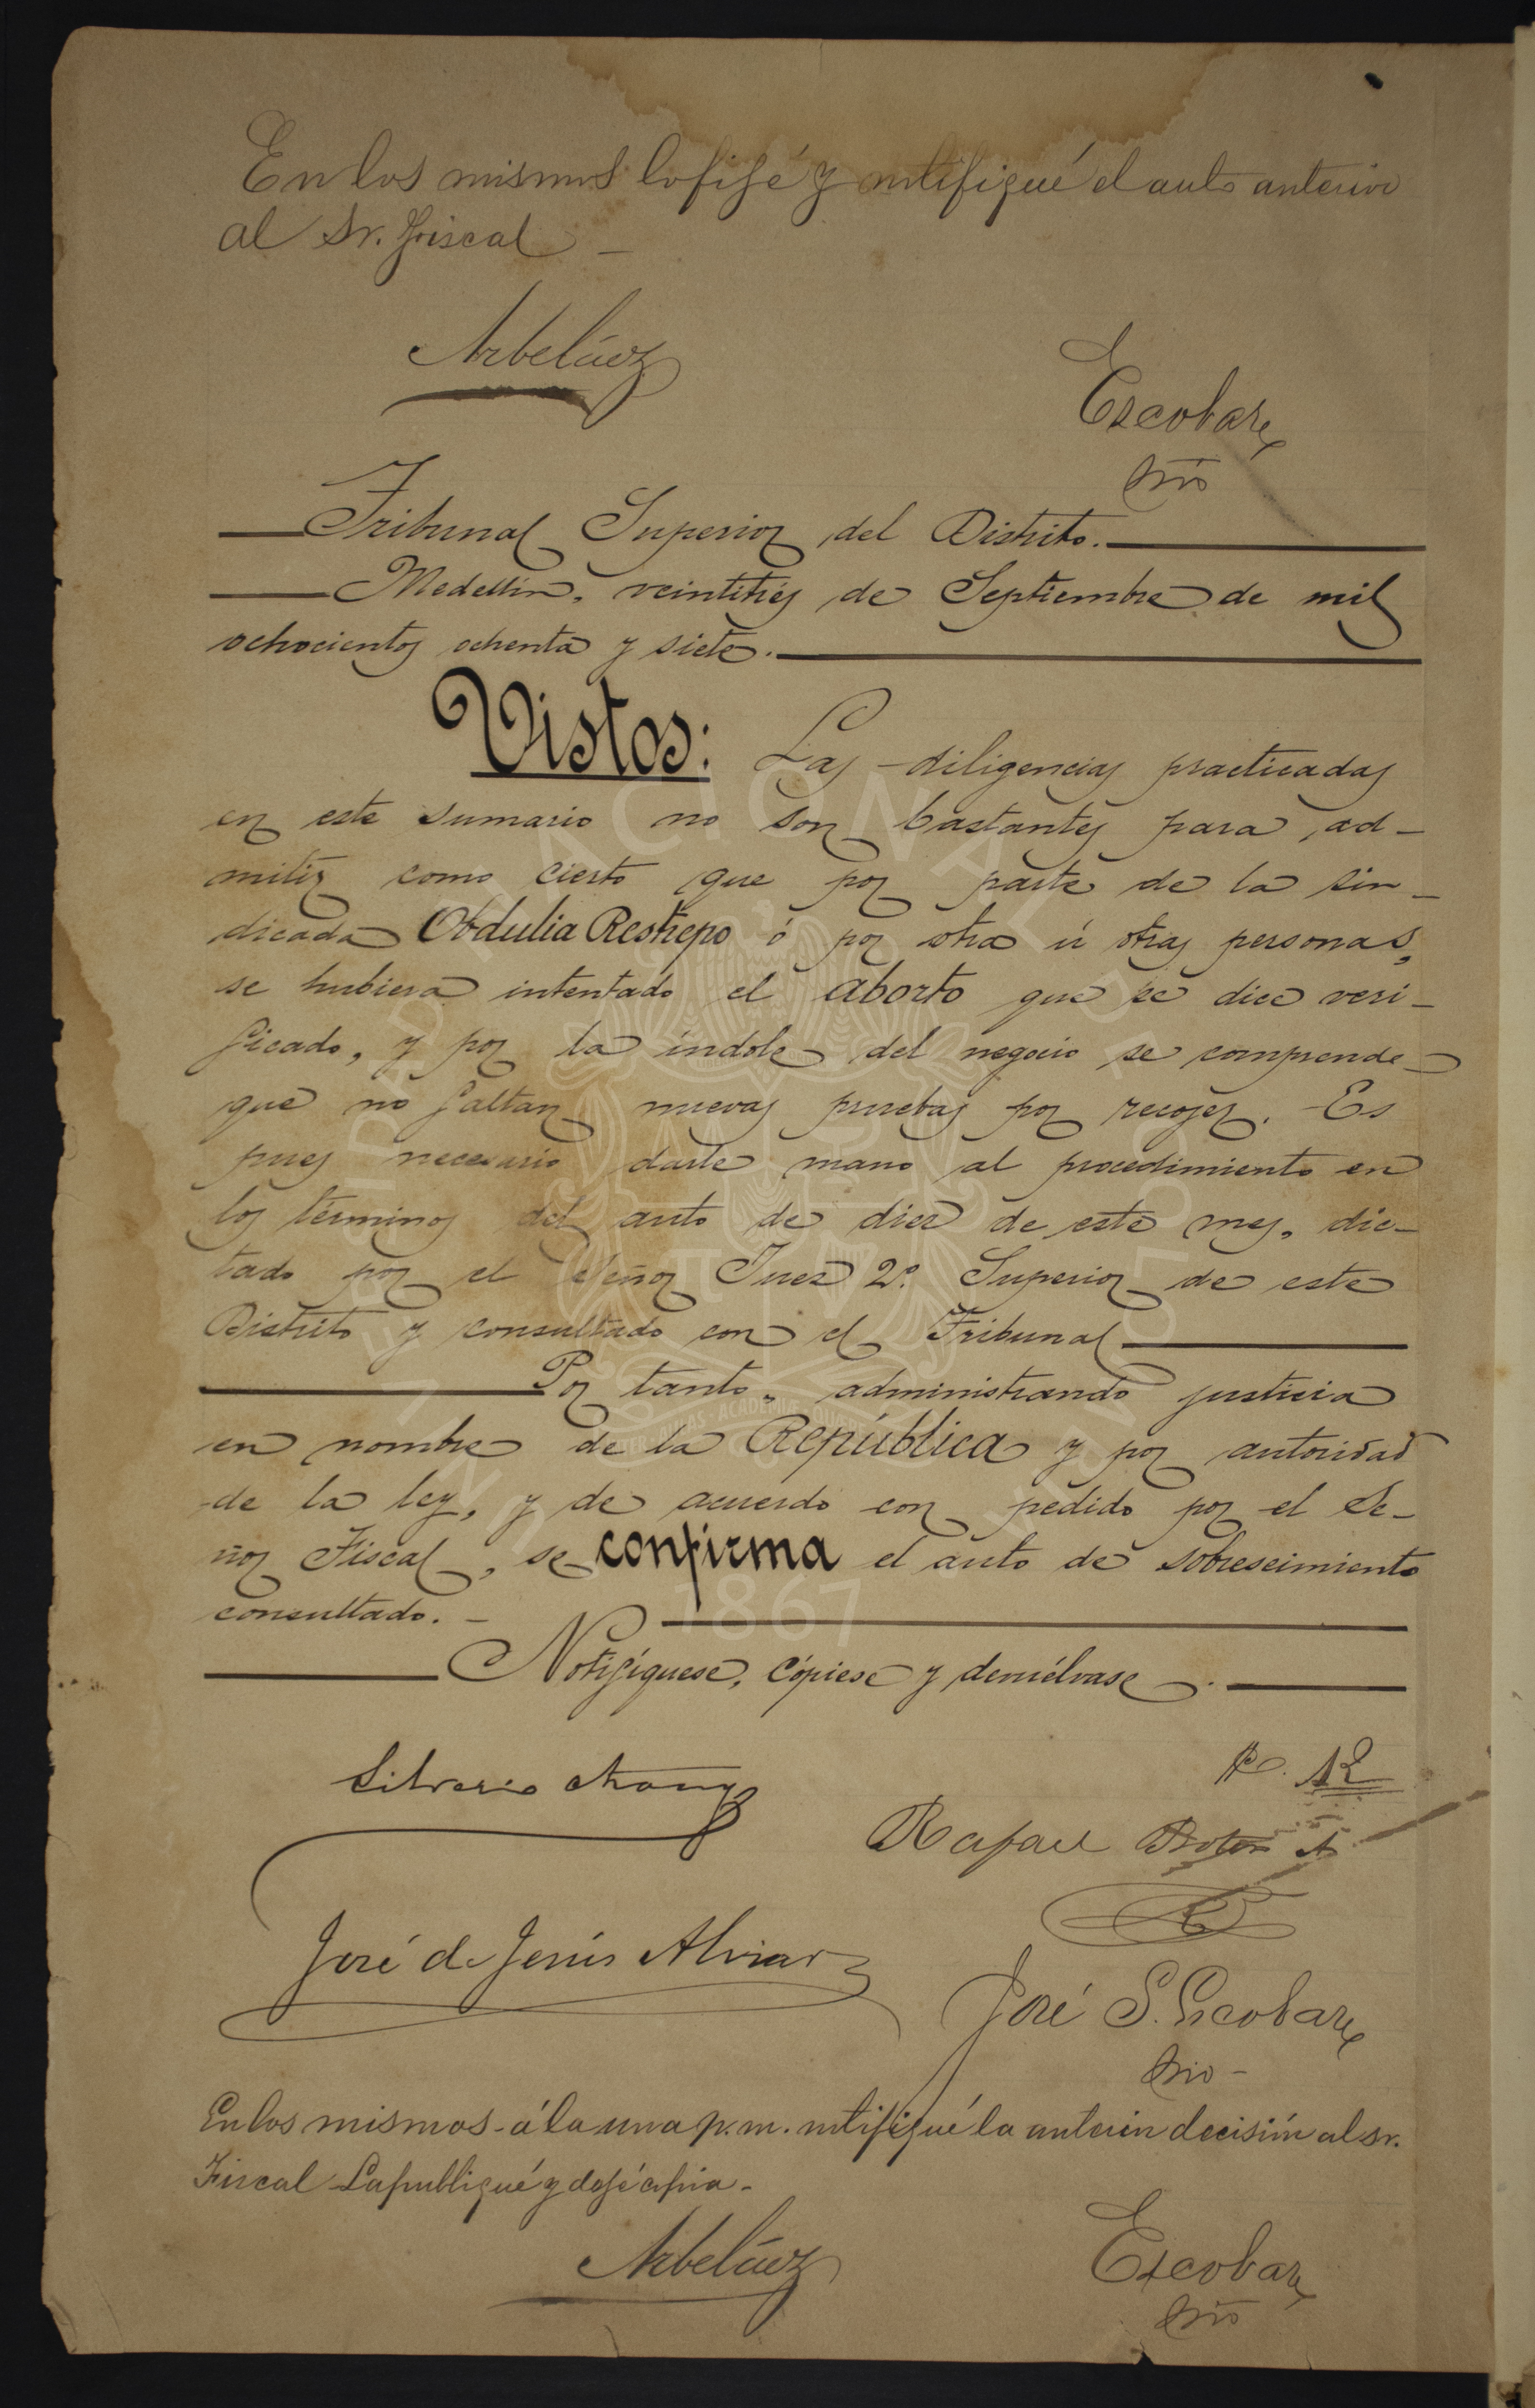 En los mismos lo fijé y notifiqué el auto anterior
al Sr. Fiscal —
Arbeláez
Escobar
Srio
Tribunal Superior del Distrito.
Medellín, veintitrés de Septiembre de mil
ochocientos ochenta y siete.
Vistos: Las diligencias practicadas
en este sumario no son bastantes para ad-
mitir como cierto que por parte de la sin-
dicada Obdulia Restrepo ó por otra ú otras personas,
se hubiera intentado el aborto que se dice veri-
ficado, y por la índole del negocio se comprende
que no faltan nuevas pruebas por recojer. Es
pues necesario darle mano al procedimiento en
los términos del auto de diez de este mes, dic-
tado por el Señor Juez 2º. Superior de este
Distrito y consultado con el Tribunal
Por tanto, administrando justicia
en nombre de la República y por autoridad
de la ley, y de acuerdo con pedido por el Se-
ñor Fiscal, se confirma el auto de sobreseimiento
consultado. —
Notifíquese, cópiese y devuélvase.
Silverio Arango
12
Rafael Botero A
José de Jesús Alviar
José S. Escobar
Srio —
En los mismos - á la una p.m. notifiqué la anterior decisión al Sr.
Fiscal La publiqué y dejé copia -
Arbeláez
Escobar
Srio
UNIVERSIDAD NACIONAL DE COLOMBIA
1867